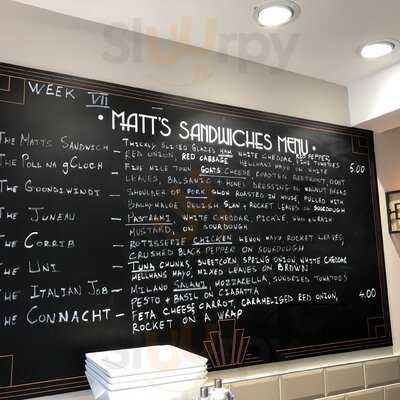 Slurpy
WEEK VII
MATT'S SANDWICHES MENU
THE MATTS SANDWICH — THICKLY SLICED GLAZED HAM WHITE CHEDDAR, RED PEPPERS,
RED ONION, RED CABBAGE HELLMANS MAYO ON WHITE 5.00
THE POLL NA gCLOCH — FIVE MILE TOWN GOATS CHEESE, ROASTED BEETROOT, PINE TOMATOES
LEAVES, BALSAMIC + HONEY DRESSING ON WALNUT BREAD
THE GOONDIWINDI — SHOULDER OF PORK SLOW ROASTED IN HOUSE, PULLED WITH
RELISH, SLAW + ROCKET LEAVES ON SOURDOUGH
THE JUNEAU — PASTRAMI, WHITE CHEDDAR, PICKLE,
MUSTARD, ON SOURDOUGH
THE CORRIB — ROTISSERIE CHICKEN LEMON MAYO, ROCKET LEAVES,
CRUSHED BLACK PEPPER ON SOURDOUGH
THE UNI — TUNA CHUNKS, SWEETCORN, SPRING ONION, WHITE CHEDDAR
HELLMANS MAYO, MIXED LEAVES ON BROWN
THE ITALIAN JOB — MILANO SALAMI, MOZZARELLA, SUNDRIED TOMATOES
PESTO + BASIL ON CIABATTA
THE CONNACHT — FETA CHEESE, CARROT, CARAMELISED RED ONION, 4.00
ROCKET ON A WRAP
Slurpy